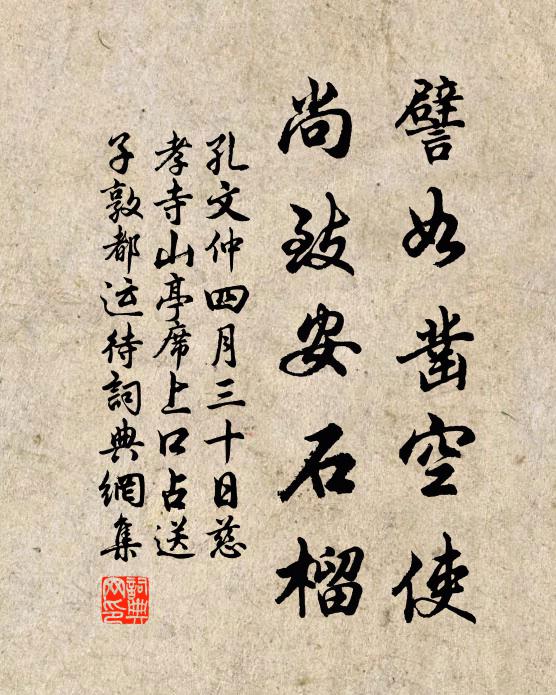 譬如鑿空使
尚致安石榴
孔文仲四月三十日慈
孝寺山亭席上口占送
子敦都运待詞典網集
詞典网印